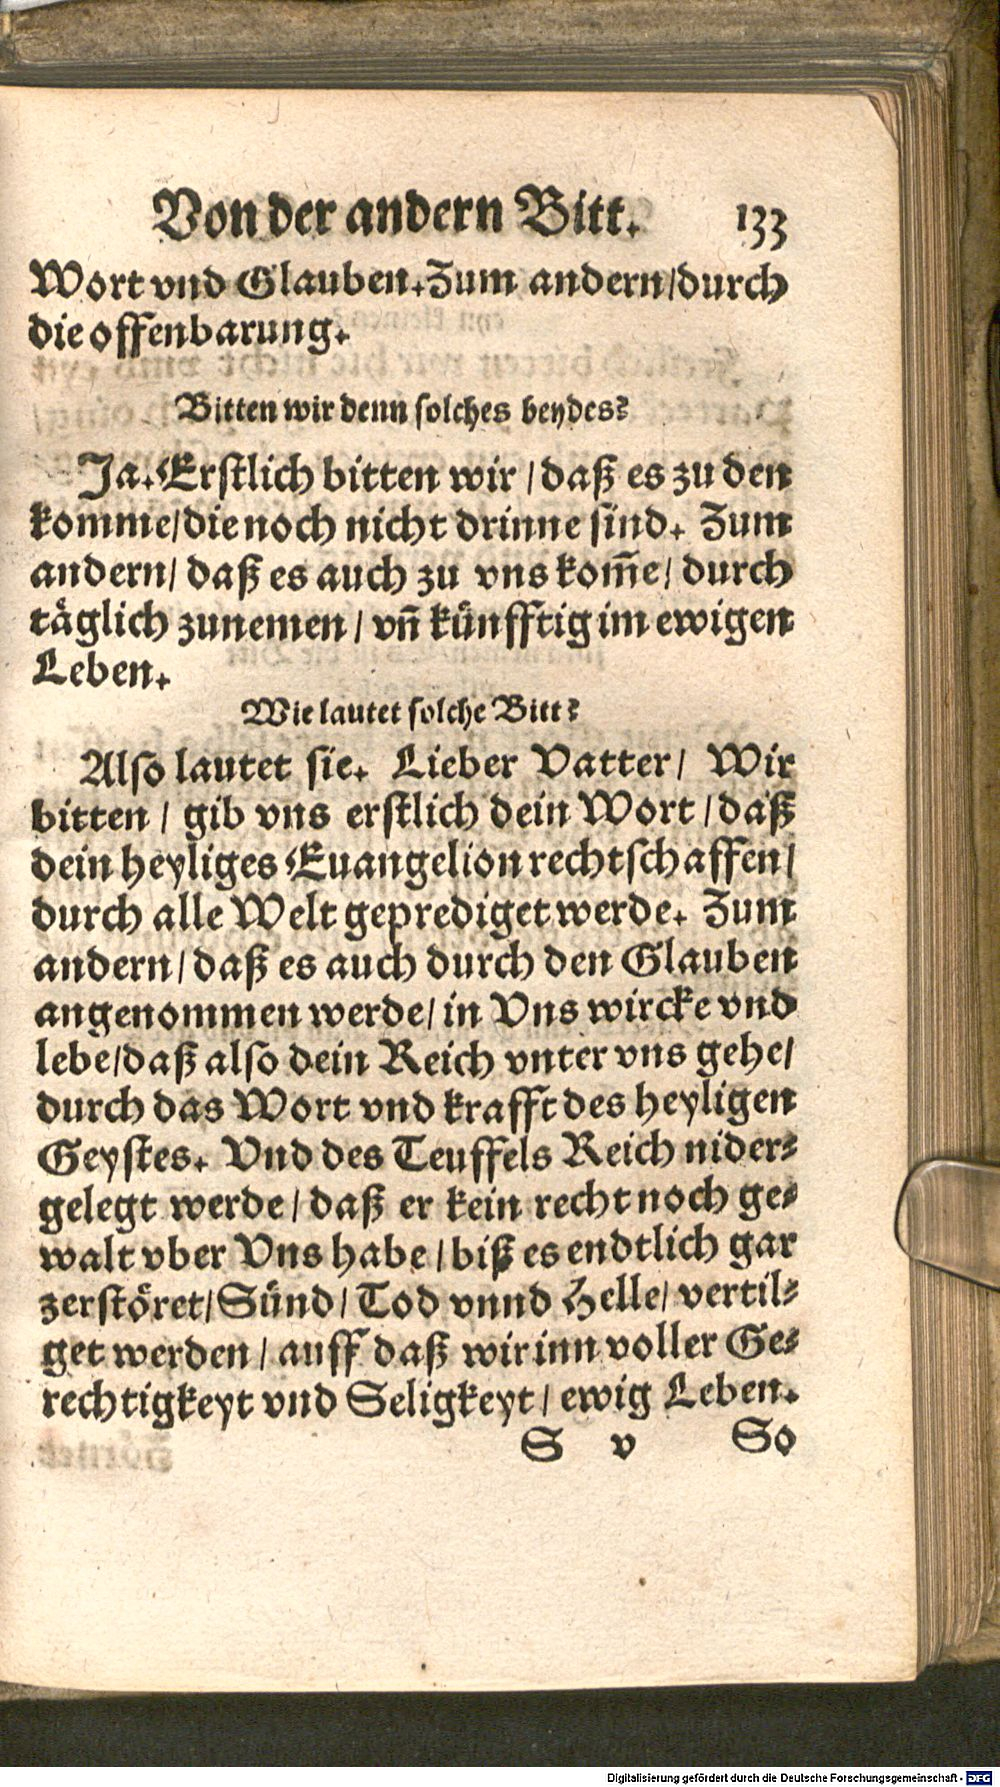 Von der andern Bitt. 133
Wort vnd Glauben. Zum andern/durch
die offenbarung.
Bitten wir denn solches beydes?
Ja. Erstlich bitten wir / daß es zu den
komme/die noch nicht drinne sind. Zum
andern/ daß es auch zu vns kom̃e/ durch
täglich zunemen / vñ künfftig im ewigen
Leben.
Wie lautet solche Bitt?
Also lautet sie. Lieber Vatter/ Wir
bitten / gib vns erstlich dein Wort / daß
dein heyliges Euangelion rechtschaffen/
durch alle Welt geprediget werde. Zum
andern/ daß es auch durch den Glauben
angenommen werde/ in Vns wircke vnd
lebe/daß also dein Reich vnter vns gehe/
durch das Wort vnd krafft des heyligen
Geystes. Vnd des Teuffels Reich nider⸗
gelegt werde / daß er kein recht noch ge⸗
walt vber Vns habe / biß es endtlich gar
zerstöret/ Sünd / Tod vnnd Helle/ vertil⸗
get werden / auff daß wir inn voller Ge⸗
rechtigkeyt vnd Seligkeyt / ewig Leben.
S v So
Digitalisierung gefördert durch die Deutsche Forschungsgemeinschaft - DFG